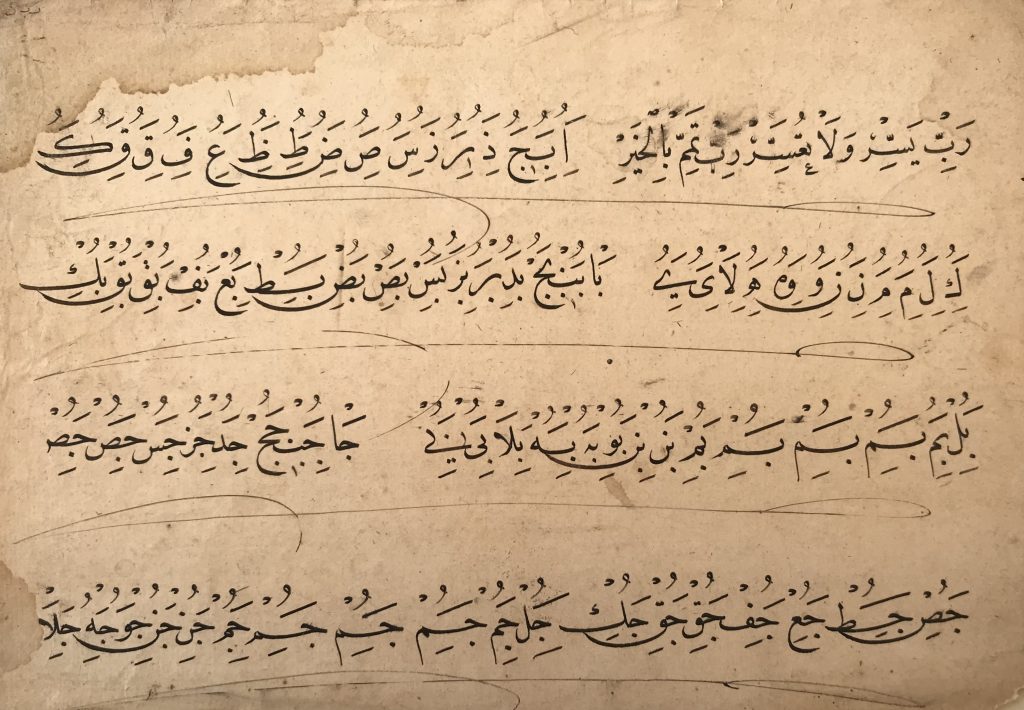 رَبِّ يَسِّرْ وَلَا تُعَسِّرْ رَبِّ تَمِّمْ بِالْخَيْرِ ا ب ج د ر ر س ص ض ط ظ ع ف ق ق ك
ك ل م م ن ن و ه ه لا ى ي با بب بج بد بر بز بس بص بض بط بع بف بق بق بك
بل بم بم بم بم بم بن بن بو به به بلا بى بي جا جب جج جد جر جس جص جص
جص جط جع جف جق جق جك جل جم جم جم جم جم جن جن جو جه جلا